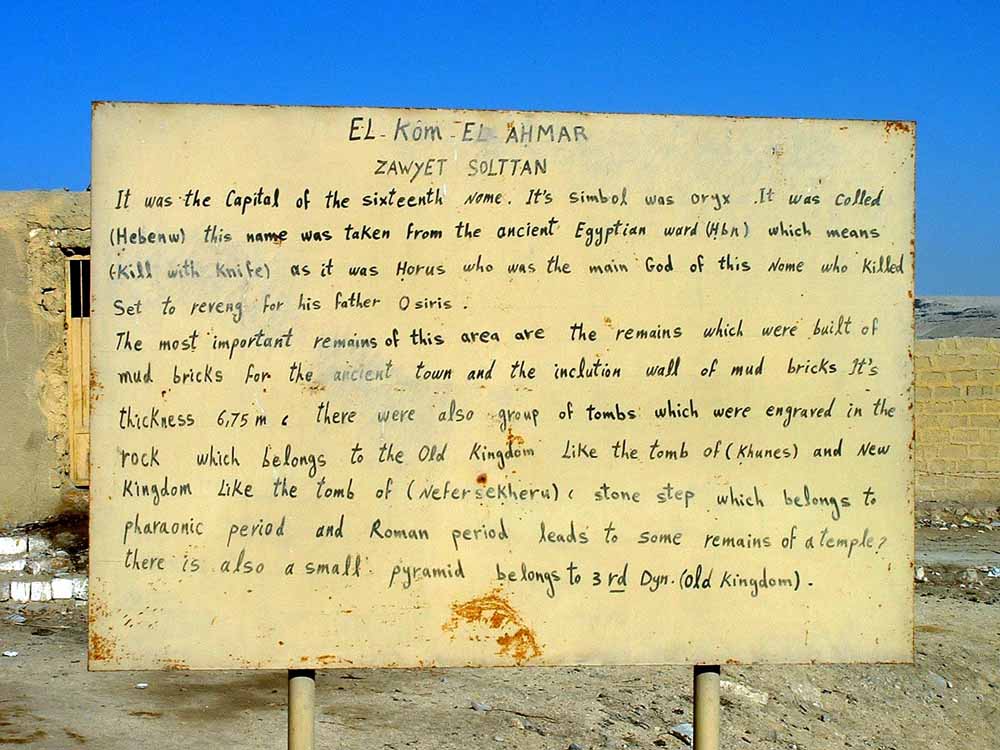 EL-Kôm-EL AḤMAR
ZAWYET SOLTTAN
It was the Capital of the sixteenth Nome. It's simbol was oryx .It was colled
(Hebenw) this name was taken from the ancient Egyptian ward (Ḥbn) which means
(Kill with Knife) as it was Ḥorus who was the main God of this Nome who Killed
Set to reveng for his father Osiris.
The most important remains of this area are the remains which were built of
mud bricks for the ancient town and the inclution wall of mud bricks It's
thickness 6,75 m ‹ there were also group of tombs which were engraved in the
rock which belongs to the Old Kingdom Like the tomb of (Khunes) and New
Kingdom Like the tomb of (Nefersekheru) ‹ stone step which belongs to
pharaonic period and Roman period leads to some remains of a temple?
there is also a small pyramid belongs to 3 rd Dyn. (Old Kingdom).